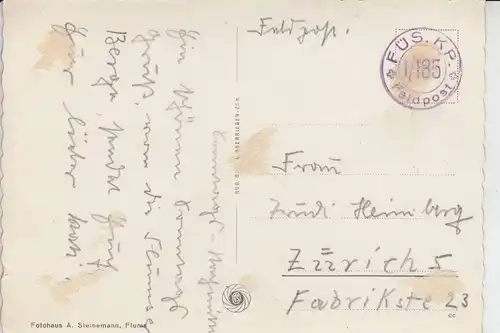 Feldpost.
FÜS. KP.
I/185
Feldpost
Sonntags-
Ein schönen Sonntags
Gruss, von die Flumser
Berge, sendet Euch
Euer lieber
Frau
Trudi Heimberg
Zürich 5
Fabrikstr 23
Fotohaus A. Steinemann, Flums
CC